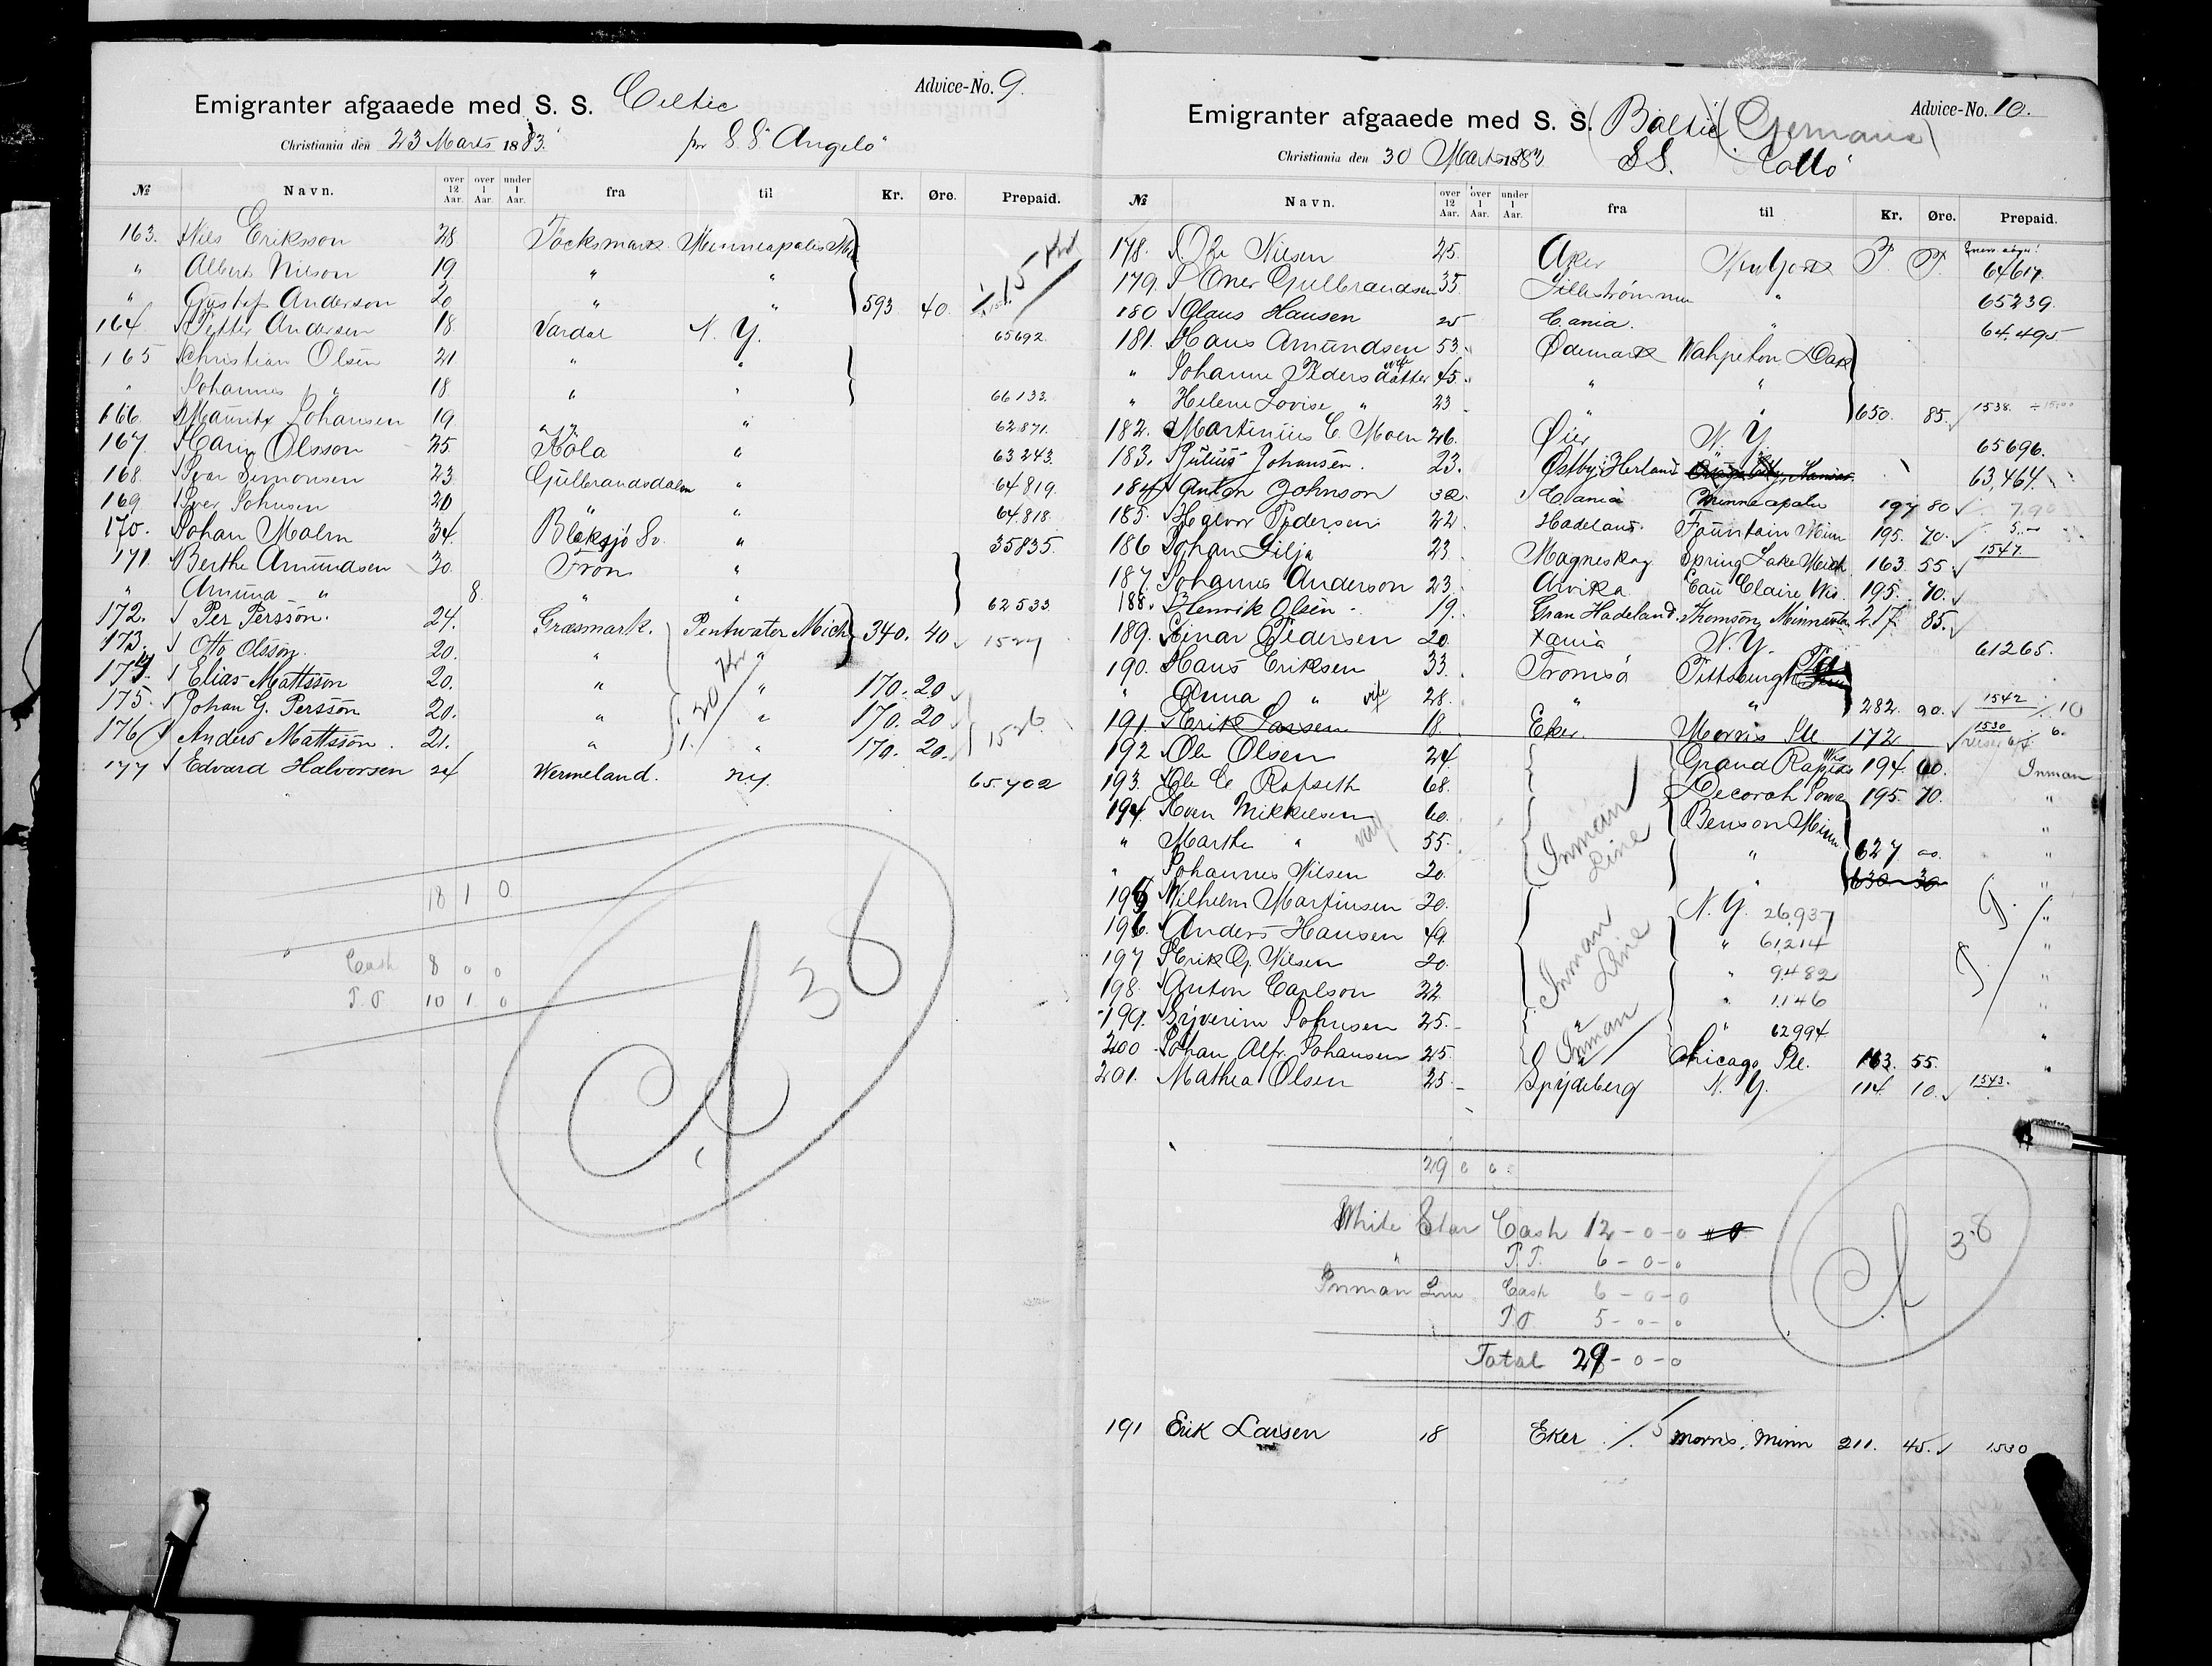 Advice-No. 9.
Emigranter afgaaede med S. S. Celtic
Christiania den 23 Marts 1883. pr S.S "Angelo"
№ Navn. over 12 Aar. over 1 Aar. under 1 Aar. fra til Kr. Øre. Prepaid.
163. Nils Eriksson 28 Töcksmark Minneapolis
" Albert Nilson 19 " "
" Gustaf Anderson 20 " " 593 40
164 Petter Andersen 18 Vardal N. Y. 65692
165 Christian Olsen 21 " "
" Johannes " 18 " " 66133
166. Mauritz Johansen 19 " " 62871.
167. Karin Olsson 25 Köla " 63243.
168. Ivar Simonsen 23 Gulbrandsdalen " 64819.
169 Iver Johnsen 20 " " 64.818.
170. Johan Malm 34. Bleksjö Sv. " 35835.
171 Berthe Amundsen 30 Fron "
" Amuna " 8. " " 62533
172. Per Persson. 24. Græsmark. Pentwater Mich 340. 40 1527
173. Otto Olsson. 20. " "
174. Elias Mattsson 20. " " 170. 20
175. Johan G. Persson 20. " " 170. 20
176 Anders Mattsson. 21. " " 170. 20. 1526
177 Edvard Halvorsen 24 Wermeland. N.Y. 65702
18 1 0
Cash 8 0 0
P.T 10 1 0
38
Advice-No. 10.
Emigranter afgaaede med S. S. (Baltic) (Germanic)
Christiania den 30 Marts 1883 S.S. "Rollo"
№ Navn. over 12 Aar. over 1 Aar. under 1 Aar. fra til Kr. Øre. Prepaid.
178. Ole Nilsen 25. Aker New York P. P. 64617.
179. Gulbrandsen 35. Lillestrømmen " 65239.
180 Olaus Hansen 25 C.ania. " 64.495
181. Hans Amundsen 53. Ødemark Wahpeton Dak
" Johanne Pedersdatter wife 45. " "
" Helene Lovise " 23 " " 650. 85. 1538. 15.00
182. Martinius C. Moen 26. Øier N. Y. 65696.
183. Julius Johansen. 23. Østby i Herland " 63.464.
184 Anton Johnson 32. C.ania Minneapolis 197 80 7.90
185. Halvor Pedersen 22. Hadeland. Fountain Minn 195. 70. 5.—
186 Johan Lilja 23 Magneskog Spring Lake Mich 163 55 1547.
187. Johannes Anderson 23. Arvika Eau Claire Wis. 195. 70.
188. Henrik Olsen. 19. Gran Hadeland. Thomson, Minnesota 217. 85.
189. Einar Pedersen 20. Xania N. Y. 61265.
190. Hans Eriksen 33. Tromsö Pittsburgh Pa
" Anna " wife 28. " " 282. 90. 1542 10
191. Erik Larsen 18. Eker. Morris Ill. 172 1530 6.
192 Ole Olsen 24 Grand Rapids Wis 194 60. Inman
193. Ole C. Rafseth 68. Decorah Iowa 195. 70. "
194. Even Mikkelsen 60. Benson Minn "
" Marthe " 55. Inman Line " 627 00. "
" Johannes Nilsen 20. " 630 30 "
195 Wilhelm Martinsen 20. N. Y. 26.937 P. "
196. Anders Hansen 49. " 61214 "
197 Erik G. Nilsen 20. Inman Line " 9482 P. "
198. Anton Carlson 22 " 1,146 "
199. Syverin Johnsen 25. " 62994 "
200 Johan Alfr. Johansen 25. Inman Chicago, Ill. 163. 55. "
201. Mathea Olsen 25 Spydeberg N. Y. 114 10. 1543.
29 0 0
White Star Cash 12-0-0
" P.T. 6-0-0
Inman Line Cash 6-0-0
P.T 5-0-0
Total 29-0-0
38
191 Erik Larsen 18 Eker Morris, Minn 211. 45. 1530